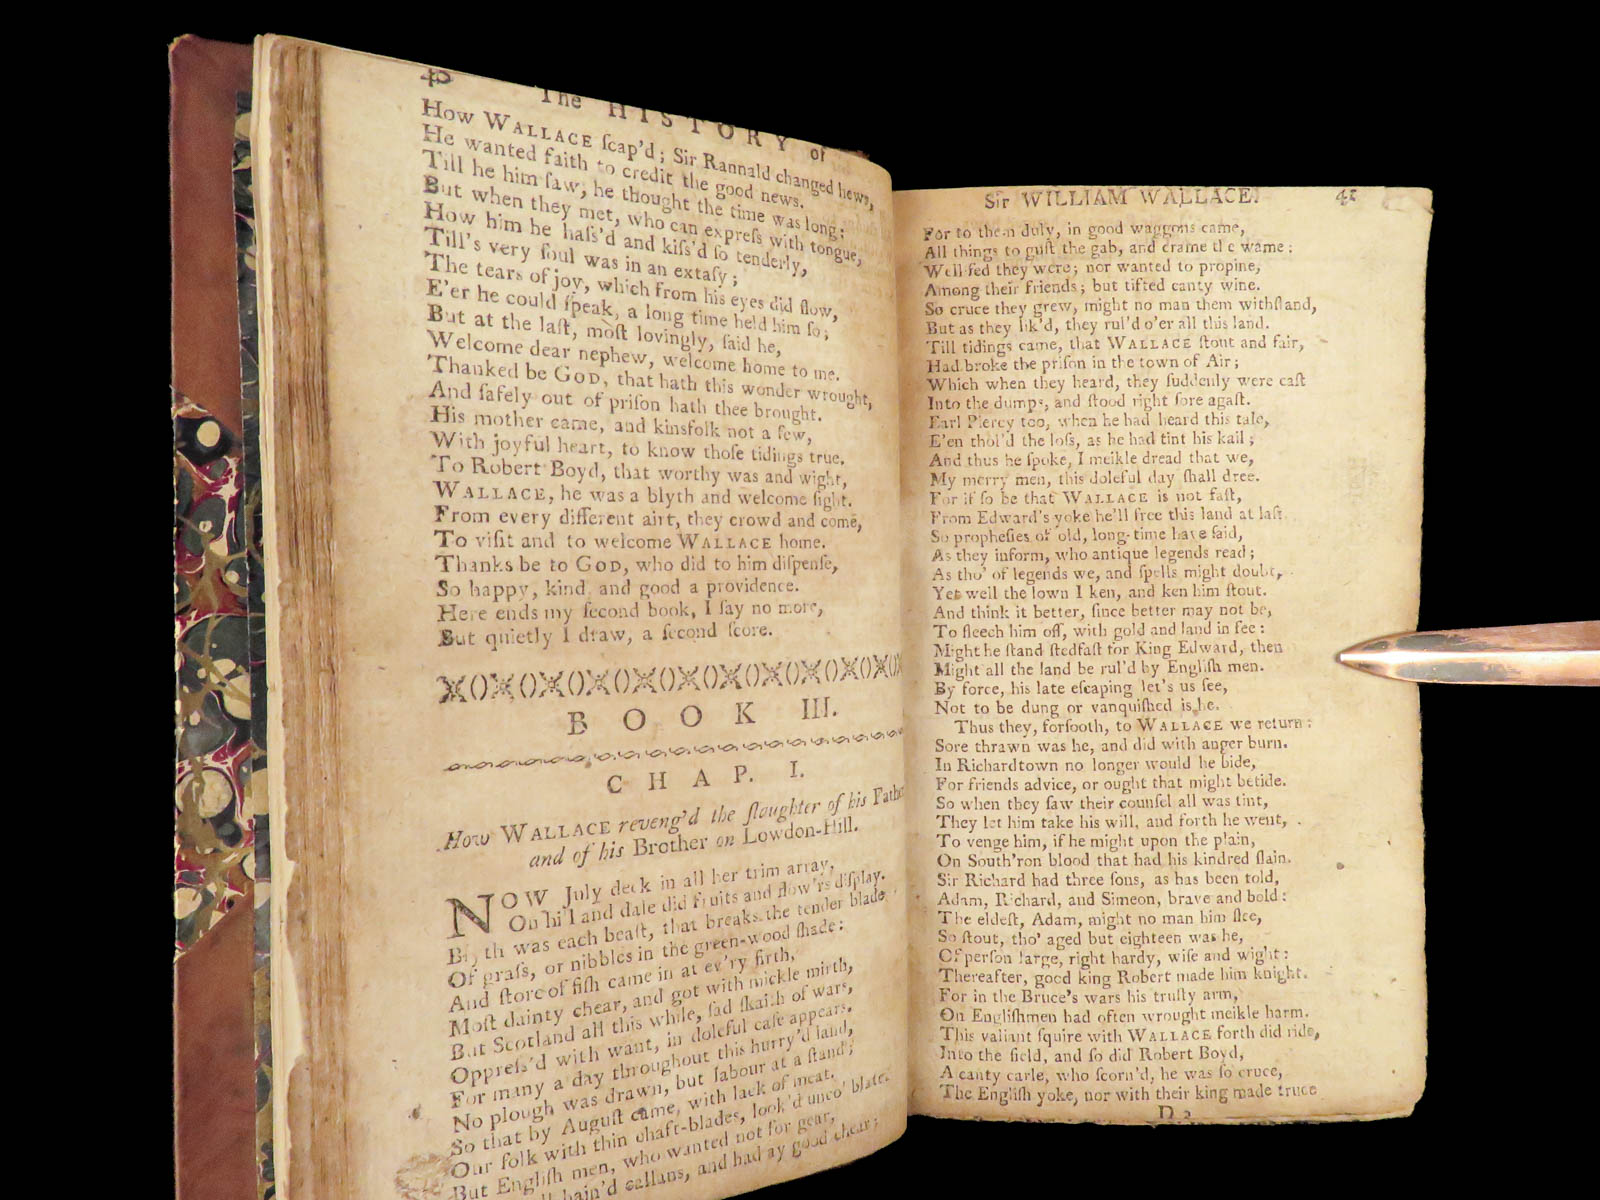 The HISTORY of
How WALLACE ſcap'd; Sir Rannald changed hews,
He wanted faith to credit the good news.
Till he him ſaw, he thought the time was long;
But when they met, who can expreſs with tongue,
How him he haſs'd and kiſs'd ſo tenderly,
Till's very ſoul was in an extaſy;
The tears of joy, which from his eyes did flow,
E'er he could ſpeak, a long time held him ſo;
But at the laſt, moſt lovingly, ſaid he,
Welcome dear nephew, welcome home to me.
Thanked be GOD, that hath this wonder wrought,
And ſafely out of priſon hath thee brought.
His mother came, and kinsfolk not a few,
With joyful heart, to know thoſe tidings true.
To Robert Boyd, that worthy was and wight,
WALLACE, he was a blyth and welcome ſight.
From every different airt, they crowd and come,
To viſit and to welcome WALLACE home.
Thanks be to GOD, who did to him diſpenſe,
So happy, kind and good a providence.
Here ends my ſecond book, I ſay no more,
But quietly I draw, a ſecond ſcore.
BOOK III.
CHAP. I.
How WALLACE reveng'd the ſlaughter of his Father
and of his Brother on Lowdon-Hill.
NOW July deck in all her trim array,
On hill and dale did fruits and flow'rs diſplay.
Blyth was each beaſt, that breaks the tender blade
Of graſs, or nibbles in the green-wood ſhade:
And ſtore of fiſh came in at ev'ry firth,
Moſt dainty chear, and got with mickle mirth,
But Scotland all this while, ſad ſkaith of wars,
Oppreſs'd with want, in doleful caſe appears.
For many a day throughout this hurry'd land,
No plough was drawn, but labour at a ſtand;
So that by Auguſt came, with lack of meat.
Our folk with thin chaft-blades, look'd unco' blate.
But Engliſh men, who wanted not for gear,
hain'd callans, and had ay good chear;
Sir WILLIAM WALLACE. 41
For to them duly, in good waggons came,
All things to guſt the gab, and crame the wame:
Well fed they were; nor wanted to propine,
Among their friends; but tifted canty wine.
So cruce they grew, might no man them withſtand,
But as they lik'd, they rul'd o'er all this land.
Till tidings came, that WALLACE ſtout and fair,
Had broke the priſon in the town of Air;
Which when they heard, they ſuddenly were caſt
Into the dumps, and ſtood right ſore agaſt.
Earl Piercy too, when he had heard this tale,
E'en thol'd the loſs, as he had tint his kail;
And thus he ſpoke, I meikle dread that we,
My merry men, this doleful day ſhall dree.
For if ſo be that WALLACE is not faſt,
From Edward's yoke he'll free this land at laſt.
So propheſies of old, long-time have ſaid,
As they inform, who antique legends read;
As tho' of legends we, and ſpells might doubt,
Yet well the lown I ken, and ken him ſtout.
And think it better, ſince better may not be,
To ſleech him off, with gold and land in fee:
Might he ſtand ſtedfaſt for King Edward, then
Might all the land be rul'd by Engliſh men.
By force, his late eſcaping let's us ſee,
Not to be dung or vanquiſhed is he.
Thus they, forſooth, to WALLACE we return:
Sore thrawn was he, and did with anger burn.
In Richardtown no longer would he bide,
For friends advice, or ought that might betide.
So when they ſaw their counſel all was tint,
They let him take his will, and forth he went,
To venge him, if he might upon the plain,
On South'ron blood that had his kindred ſlain.
Sir Richard had three ſons, as has been told,
Adam, Richard, and Simeon, brave and bold:
The eldeſt, Adam, might no man him ſlee,
So ſtout, tho' aged but eighteen was he,
Of perſon large, right hardy, wiſe and wight:
Thereafter, good king Robert made him knight.
For in the Bruce's wars his truſty arm,
On Engliſhmen had often wrought meikle harm.
This valiant ſquire with WALLACE forth did ride,
Into the field, and ſo did Robert Boyd,
A canty carle, who ſcorn'd, he was ſo cruce,
The Engliſh yoke, nor with their king made truce